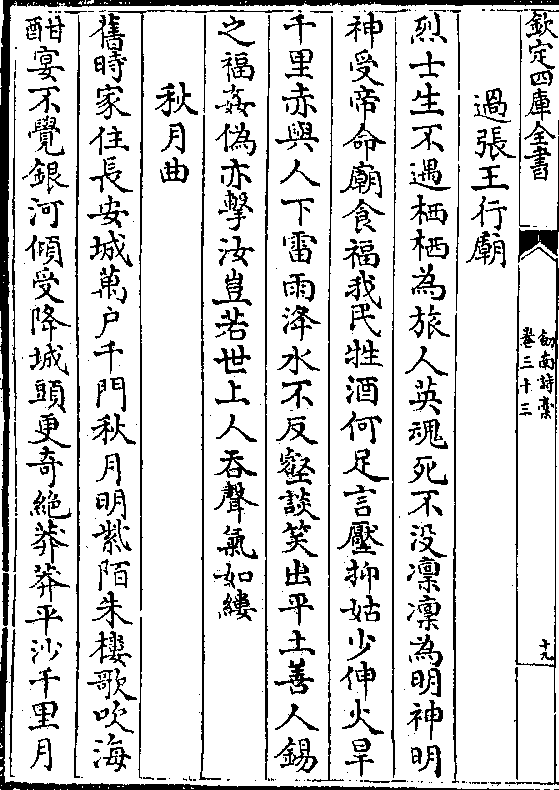 欽定四庫全書
劎南詩稾
卷三十三
十九
過張王行廟
烈士生不遇栖栖為旅人英魂死不没凛凛為明神明
神受帝命廟食福我民牲酒何足言壓抑姑少伸火旱
千里赤與人下雷雨洚水不反壑談笑出平土善人錫
之福姦偽亦擊汝豈若世上人吞聲氣如縷
秋月曲
舊時家住長安城萬户千門秋月明紫陌朱樓歌吹海
酣宴不覺銀河傾受降城頭更奇絶莽莽平沙千里月